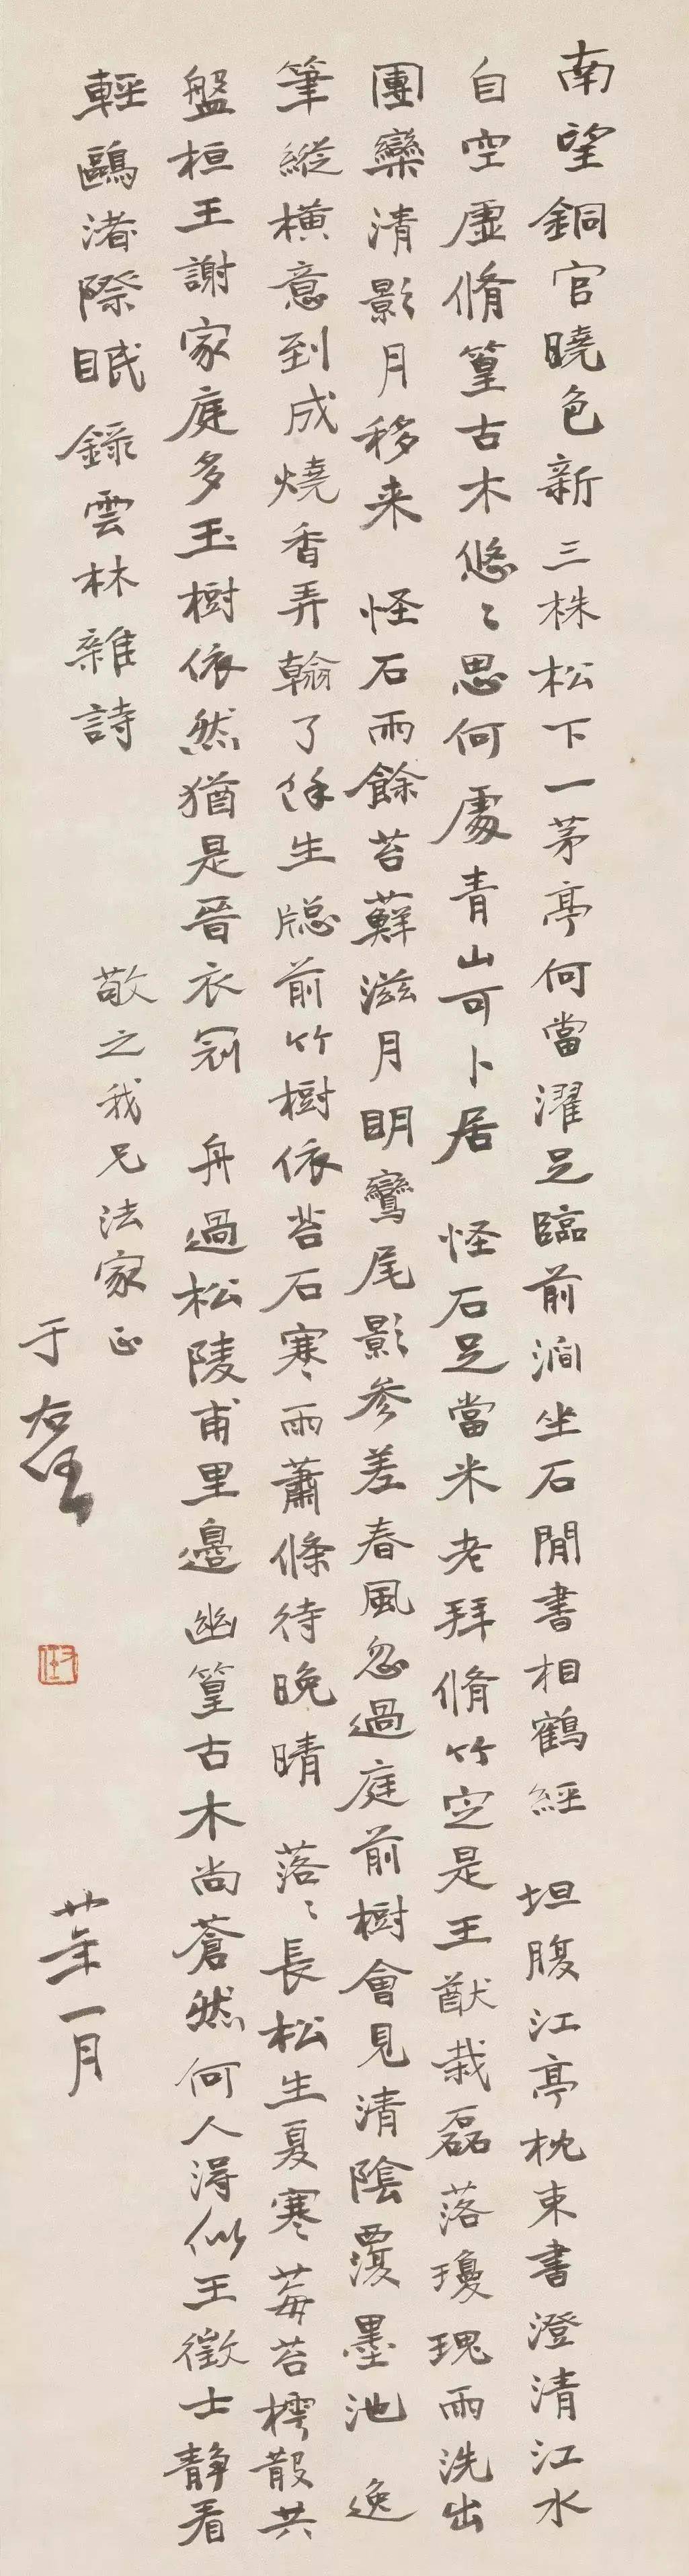 南望銅官曉色新三株松下一茅亭何當濯足臨前澗坐石閒書相鶴經　坦腹江亭枕束書澄清江水
自空虛脩篁古木悠〻思何處青山可卜居　怪石足當米老拜脩竹定是王猷栽磊落瓊瑰雨洗出
團欒清影月移来　怪石雨餘苔蘚滋月明鸞尾影參差春風忽過庭前樹會見清陰覆墨池　逸
筆縱橫意到成燒香弄翰了餘生窗前竹樹依苔石寒雨蕭條待晚晴　落〻長松生夏寒莓苔樗散共
盤桓王謝家庭多玉樹依然猶是晉衣冠　舟過松陵甫里邊幽篁古木尚蒼然何人得似王徵士靜看
輕鷗渚際眠錄雲林雜詩
敬之我兄法家正
于右任
卅年一月